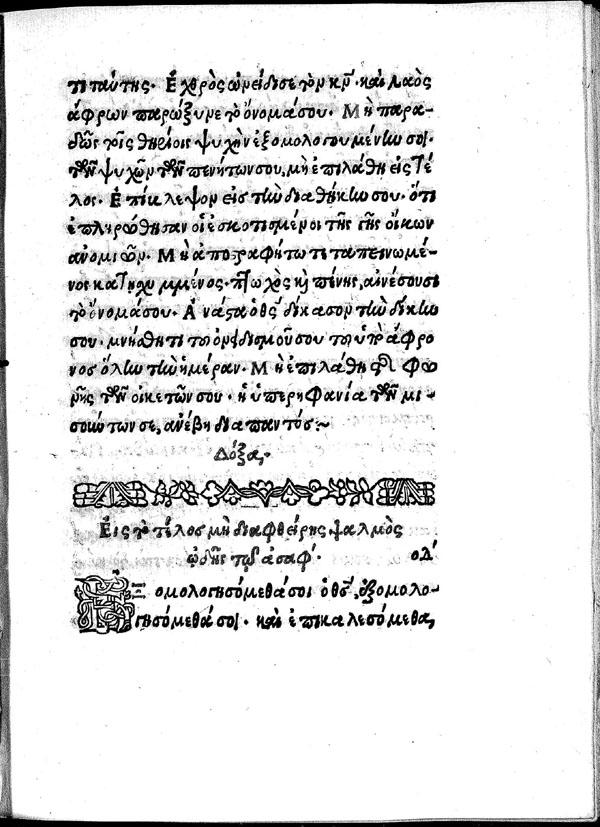 τι ταύτης. Ἐχθρὸς ὠνείδισε τὸν κν̅. καὶ λαὸς
ἄφρων παρώξυνε τὸ ὄνομά σου. Μὴ παρα-
δῶς τοῖς θηρίοις ψυχὴν ἐξομολογουμένην σοι.
τῶν ψυχῶν τῶν πενήτων σου, μὴ ἐπιλάθῃ εἰς τέ
λος. Ἐπίβλεψον εἰς τὴν διαθήκην σου. ὅτι
ἐπληρώθησαν οἱ ἐσκοτισμένοι τῆς γῆς οἴκων
ἀνομιῶν. Μὴ ἀποστραφήτω τεταπεινωμέ-
νος κατῃσχυμμένος. πτωχὸς καὶ πένης, αἰνέσουσι
τὸ ὄνομά σου. Ἀνάστα ὁ θς̅ δίκασον τὴν δίκην
σου. μνήσθητι τοῦ ὀνειδισμοῦ σου τοῦ ὑπὸ ἄφρο
νος ὅλην τὴν ἡμέραν. Μὴ ἐπιλάθῃ τῆς φω
νῆς τῶν οἰκετῶν σου. ἡ ὑπερηφανία τῶν μι-
σούντων σε, ἀνέβη διαπαντός:~
Δόξα,
Εἰς τὸ τέλος μὴ διαφθείρης, ψαλμὸς
ᾠδῆς τῷ ἀσάφ. οδ΄
Ἐξομολογησόμεθά σοι ὁ θς̅, ἐξομολο-
γησόμεθά σοι. καὶ ἐπικαλεσόμεθα,